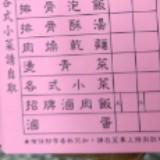 各式小菜請自取
排骨泡飯
排骨酥湯
肉燥乾麵
燙青菜
各式小菜
招牌滷肉飯
滷蛋